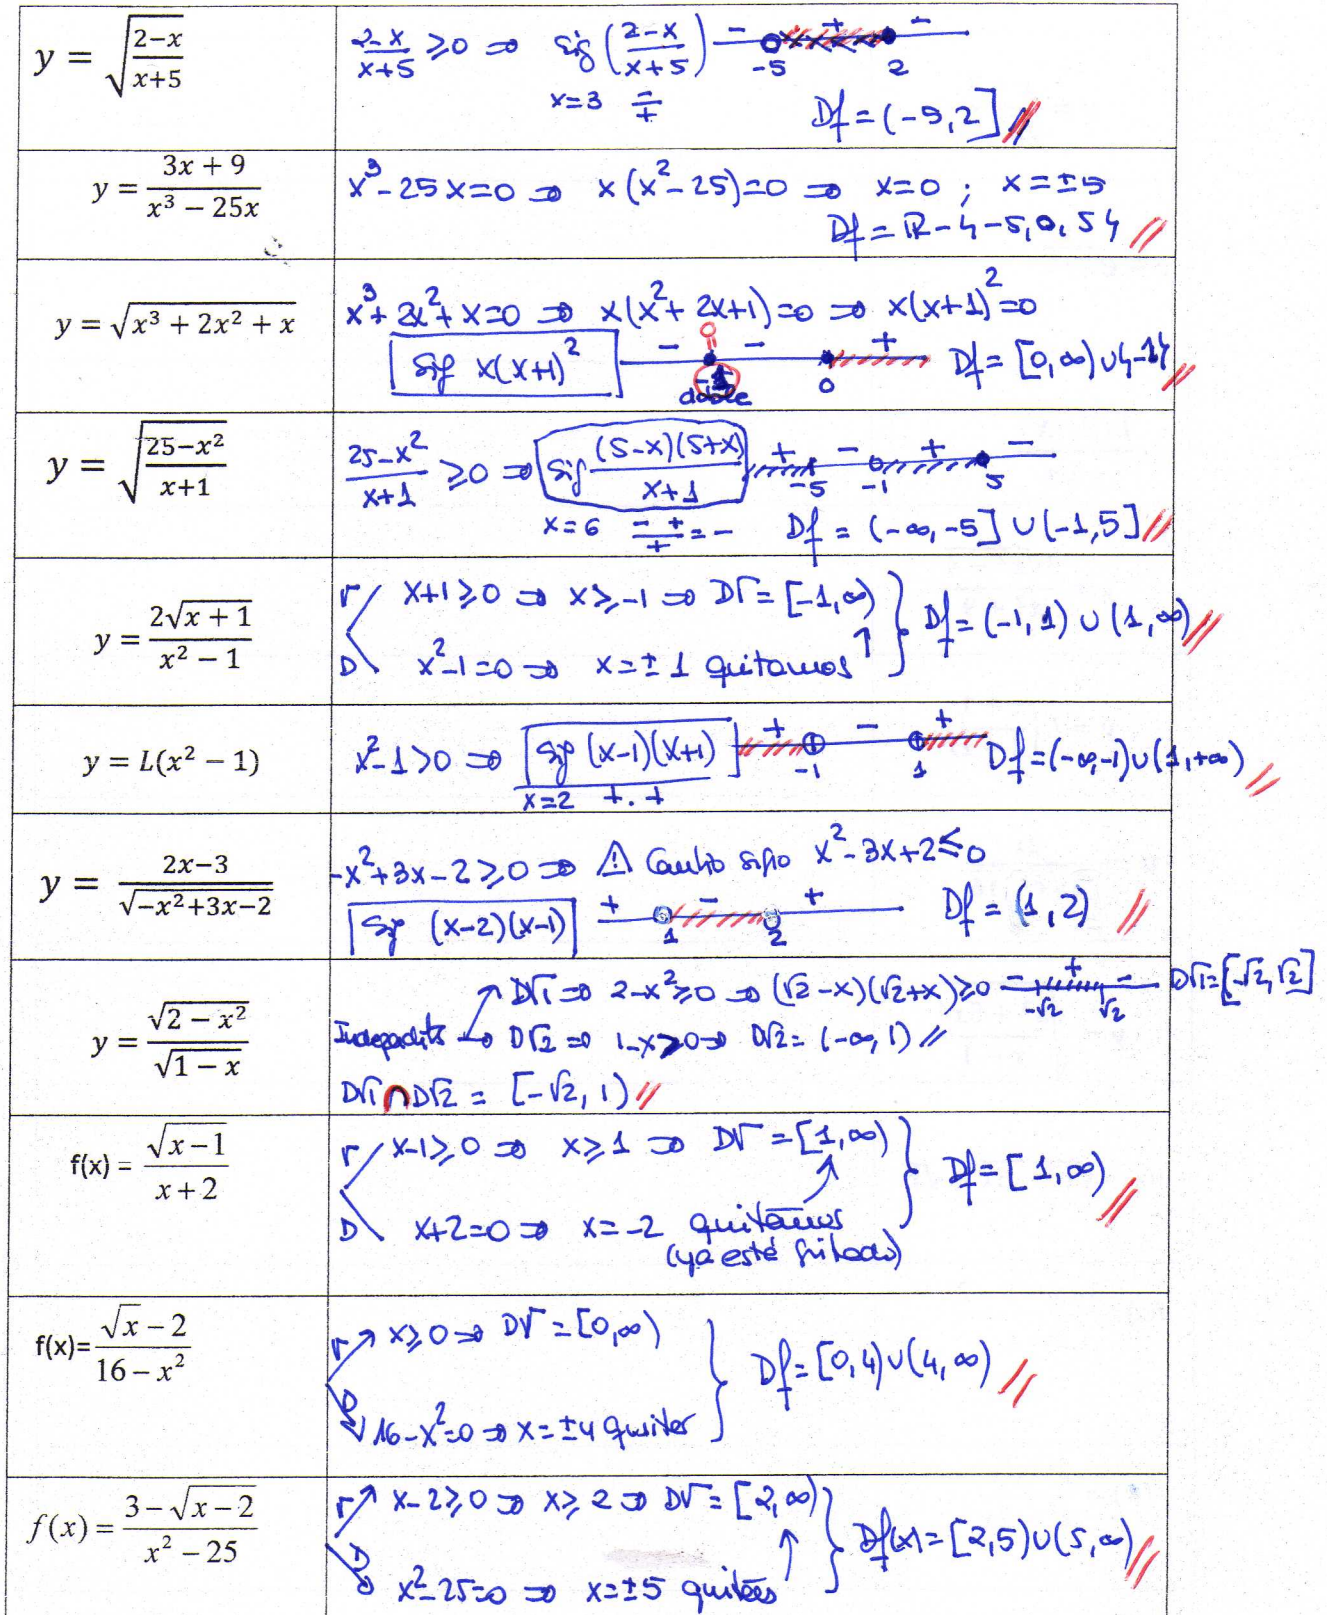 y = √((2−x)/(x+5))
(2-x)/(x+5) ≥ 0 ⇒ sig ((2-x)/(x+5)) - -5 + 2 -
x=3 -/+ Df = (-5, 2]
y = (3x + 9)/(x³ − 25x)
x³ - 25x = 0 ⇒ x(x² - 25) = 0 ⇒ x = 0 ; x = ±5
Df = R - {-5, 0, 5}
y = √(x³ + 2x² + x)
x³ + 2x² + x = 0 ⇒ x(x² + 2x + 1) = 0 ⇒ x(x+1)² = 0
Sig x(x+1)² - 0 -1 doble - 0 + Df = [0, ∞) ∪ {-1}
y = √((25−x²)/(x+1))
(25-x²)/(x+1) ≥ 0 ⇒ Sig (5-x)(5+x)/(x+1) + -5 - -1 + 5 -
x = 6 - +/+ = - Df = (-∞, -5] ∪ (-1, 5]
y = 2√(x + 1)/(x² − 1)
r x+1 ≥ 0 ⇒ x ≥ -1 ⇒ D√ = [-1, ∞)
D x² - 1 = 0 ⇒ x = ± 1 quitamos ↑ } Df = (-1, 1) ∪ (1, ∞)
y = L(x² − 1)
x² - 1 > 0 ⇒ Sig (x-1)(x+1) + -1 - 1 + Df = (-∞, -1) ∪ (1, +∞)
x=2 + . +
y = (2x−3)/√(−x²+3x−2)
-x² + 3x - 2 ≥ 0 ⇒ ⚠ Cambio signo x² - 3x + 2 ≤ 0
Sig (x-2)(x-1) + 1 - 2 + Df = (1, 2)
y = √(2 − x²)/√(1 − x)
D√1 ⇒ 2 - x² ≥ 0 ⇒ (√2 - x)(√2 + x) ≥ 0 - -√2 + √2 - D√1 = [-√2, √2]
D√2 ⇒ 1 - x > 0 ⇒ D√2 = (-∞, 1)
D√1 ∩ D√2 = [-√2, 1)
f(x) = √(x − 1)/(x + 2)
r x-1 ≥ 0 ⇒ x ≥ 1 ⇒ D√ = [1, ∞)
D x+2 = 0 ⇒ x = -2 quitamos } Df = [1, ∞)
(ya esté quitado)
f(x)= (√x − 2)/(16 − x²)
r x ≥ 0 ⇒ D√ = [0, ∞)
D 16 - x² = 0 ⇒ x = ±4 quitar } Df = [0, 4) ∪ (4, ∞)
f(x) = (3 − √(x − 2))/(x² − 25)
r x - 2 ≥ 0 ⇒ x ≥ 2 ⇒ D√ = [2, ∞)
D x² - 25 = 0 ⇒ x = ±5 ↑ } Df(x) = [2, 5) ∪ (5, ∞)